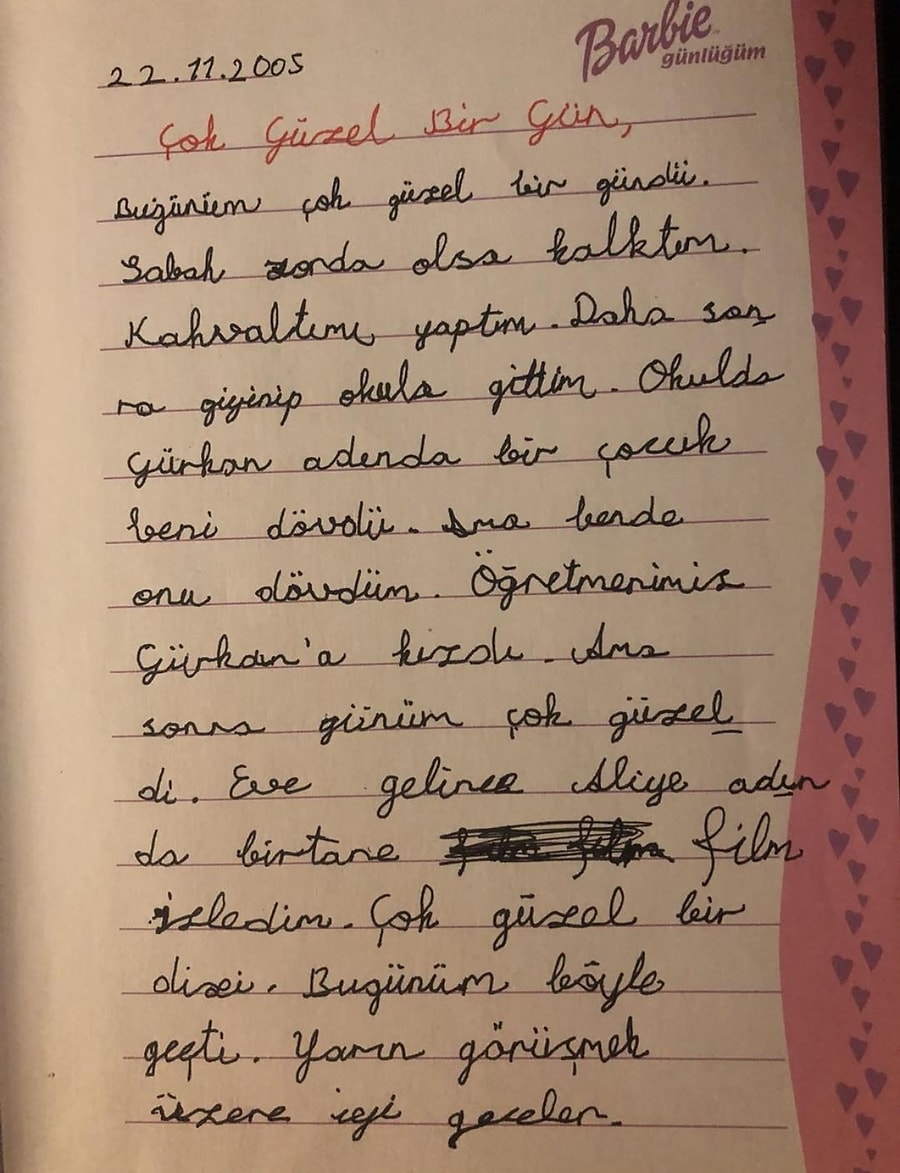 Barbie
günlüğüm
22.11.2005
Çok Güzel Bir Gün,
Bugünüm çok güzel bir gündü.
Sabah zorda olsa kalktım.
Kahvaltımı yaptım. Daha son
ra giyinip okula gittim. Okulda
Gürkan adında bir çocuk
beni dövdü. Ama bende
onu dövdüm. Öğretmenimiz
Gürkan'a kızdı. Ama
sonra günüm çok güzel_
di. Eve gelince Aliye adın
da birtane film
izledim. Çok güzel bir
dizi. Bugünüm böyle
geçti. Yarın görüşmek
üzere iyi geceler.